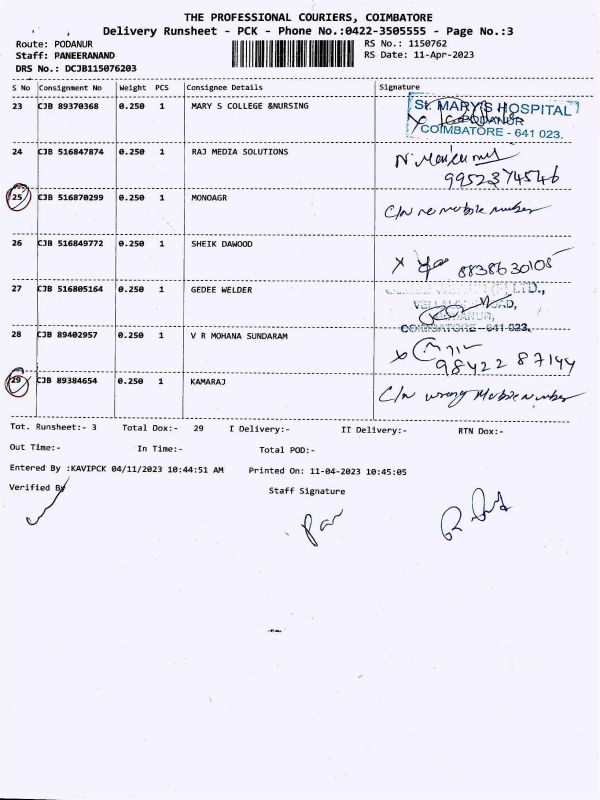 THE PROFESSIONAL COURIERS, COIMBATORE
Delivery Runsheet - PCK - Phone No.:0422-3505555 - Page No.:3
Route: PODANUR RS No.: 1150762
Staff: PANEERANAND RS Date: 11-Apr-2023
DRS No.: DCJB115076203
S No Consignment No Weight PCS Consignee Details Signature
23 CJB 89370368 0.250 1 MARY S COLLEGE &NURSING
St. MARY'S HOSPITAL
PODANUR
COIMBATORE - 641 023.
24 CJB 516847874 0.250 1 RAJ MEDIA SOLUTIONS
9952374546
25 CJB 516870299 0.250 1 MONOAGR
C/n no mobile number
26 CJB 516849772 0.250 1 SHEIK DAWOOD
X 8838630105
27 CJB 516805164 0.250 1 GEDEE WELDER
LTD.,
COIMBATORE - 641 023.
28 CJB 89402957 0.250 1 V R MOHANA SUNDARAM
X
98422 87144
29 CJB 89384654 0.250 1 KAMARAJ
C/n wrong Mobile Number
Tot. Runsheet:- 3 Total Dox:- 29 I Delivery:- II Delivery:- RTN Dox:-
Out Time:- In Time:- Total POD:-
Entered By :KAVIPCK 04/11/2023 10:44:51 AM Printed On: 11-04-2023 10:45:05
Verified By Staff Signature